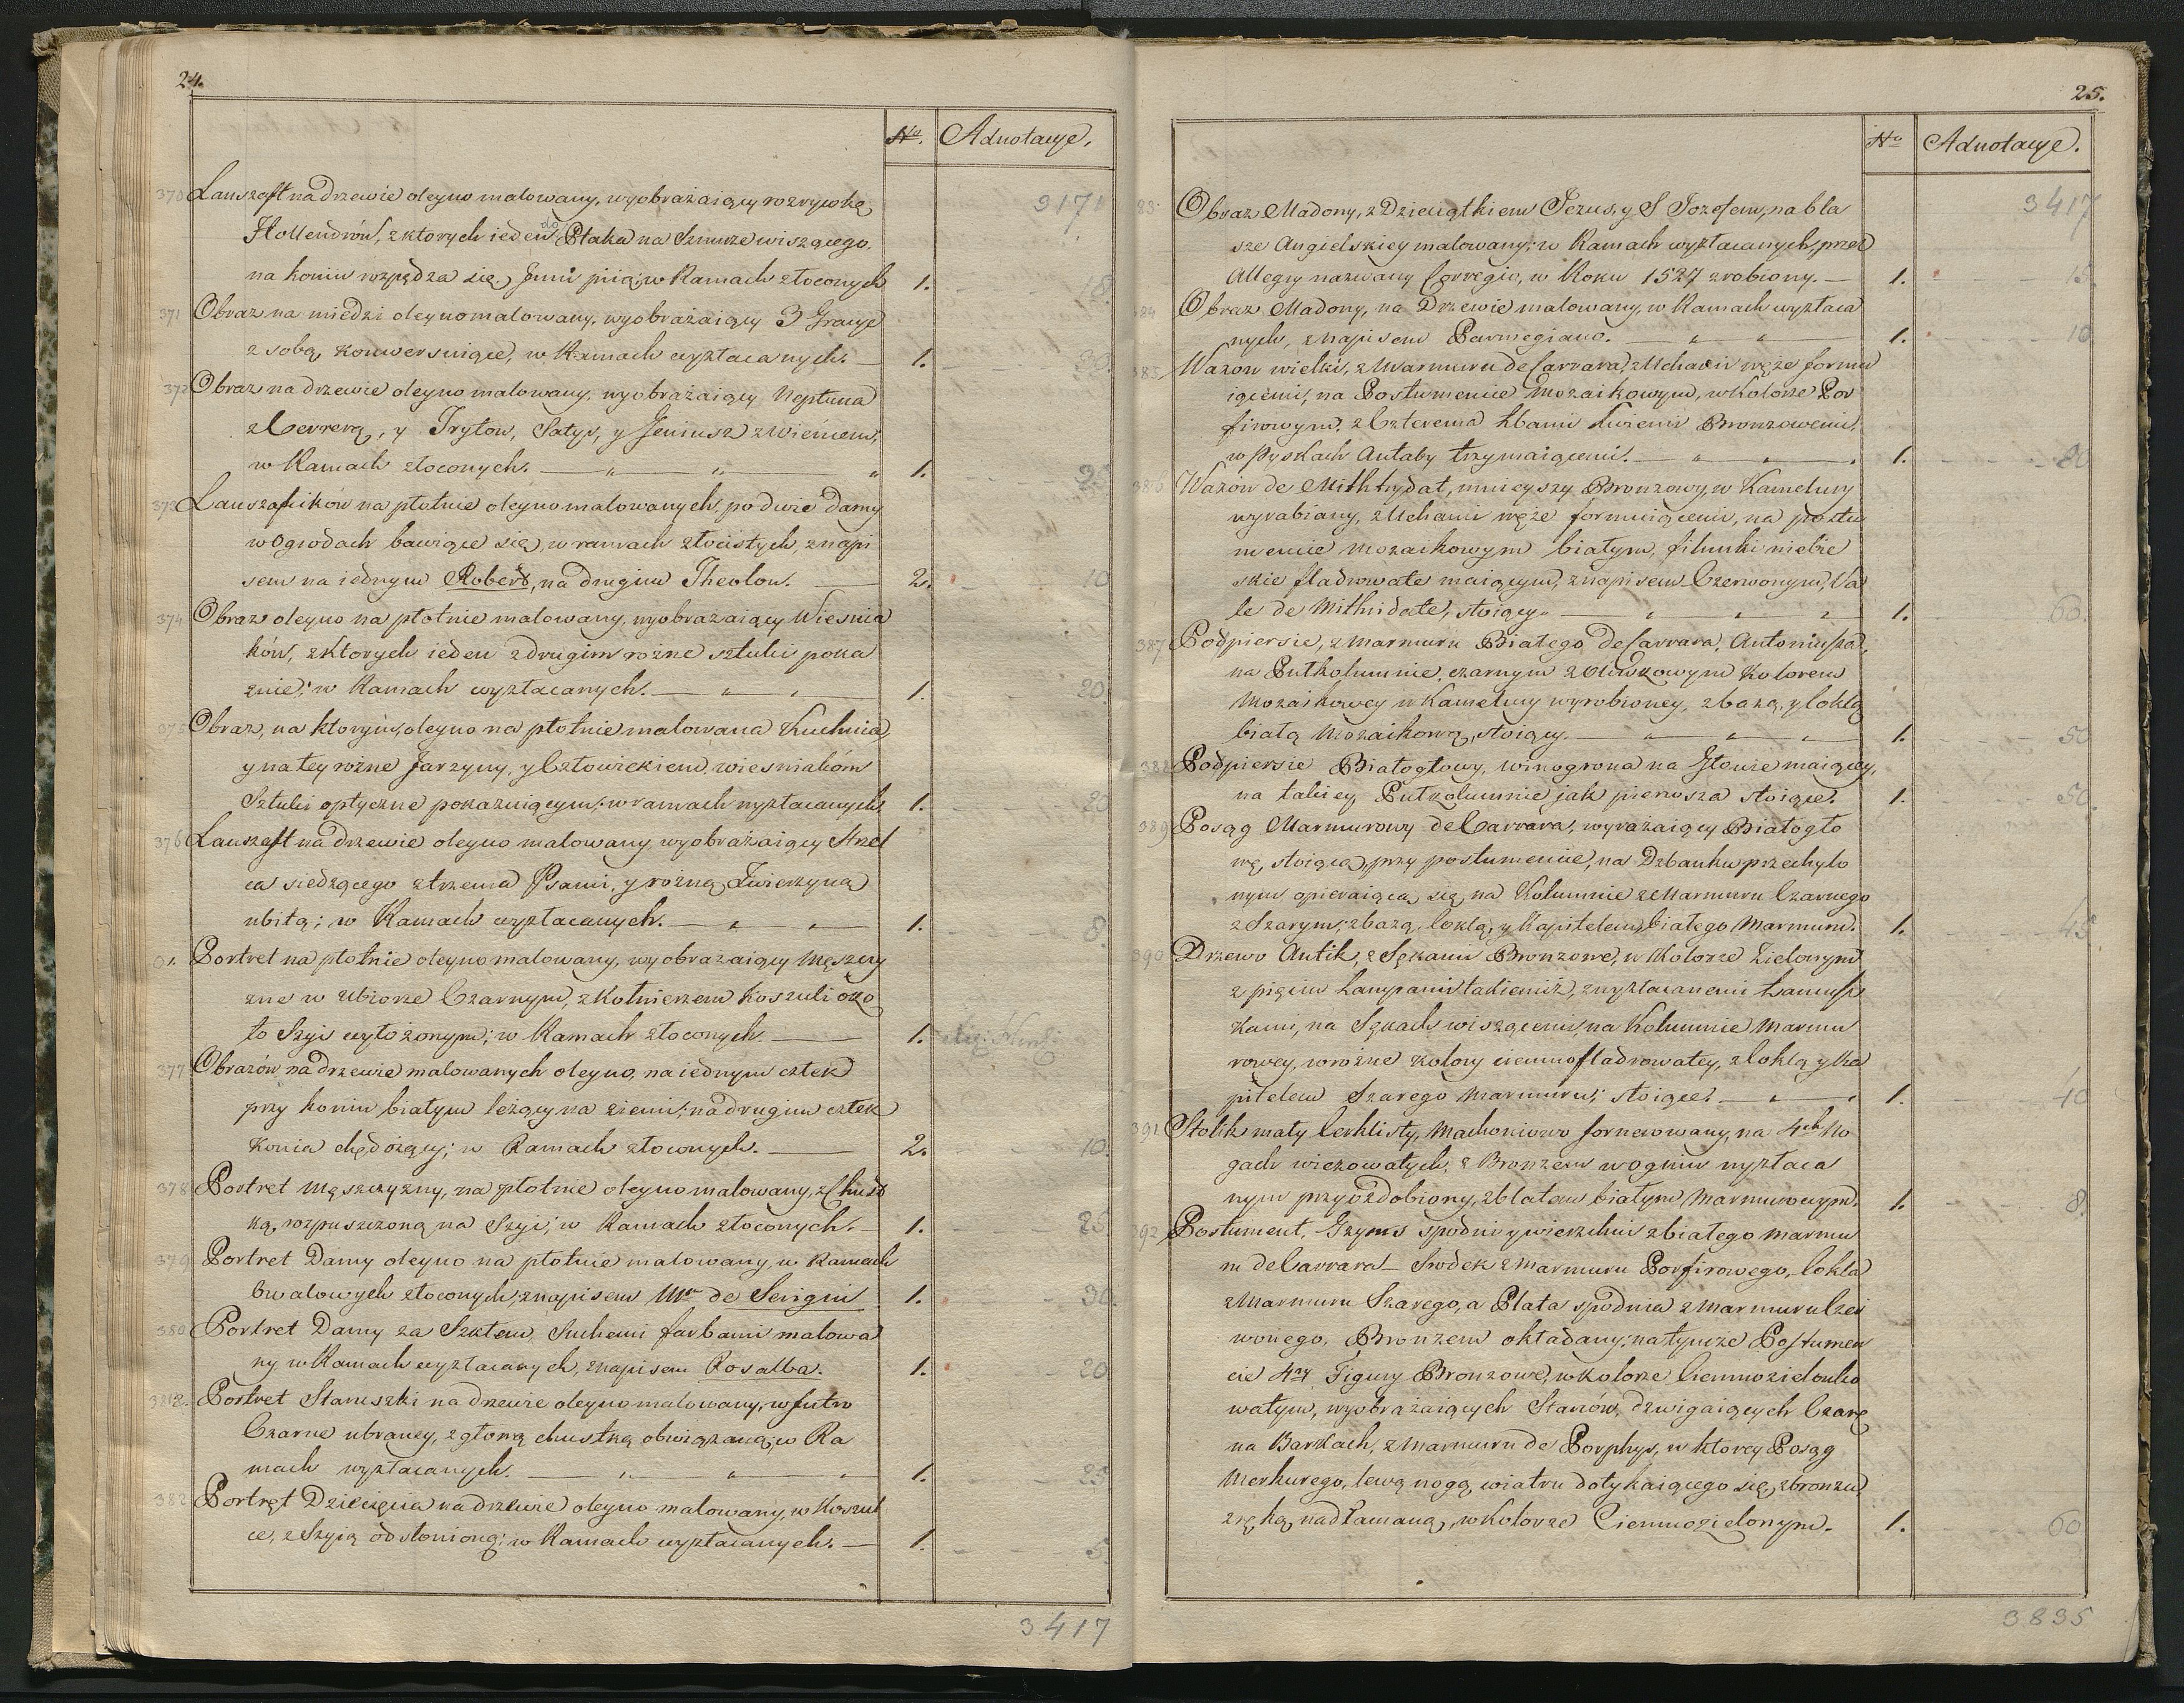 24.
No. Adnotacye.
3171
370 Lanszaft na drzewie oleyno malowany, wyobrażaiący rozrywkę
Hollendrów, z ktorych ieden do Ptaka na Sznurze wiszącego.
na koniu rozpędza się, Jnni piią; w Ramach złoconych 1. 18.
371 Obraz na miedzi oleyno malowany, wyobrażaiący 3 Gracye
z sobą konwersuiące, w Ramach wyzłacanych. 1. 30.
372 Obraz na drzewie oleyno malowany, wyobrażaiący Neptuna
z Cererą, y Tryton, Satyr, y Jeniusz z Wieńcem;
w Ramach złoconych. 1. 25
373 Lanszafcików na płotnie oleyno malowanych, po dwie damy
w Ogrodach bawiące się, w ramach złocistych, z napi
sem na iednym Robert, na drugim Theolon. 2. 10
374 Obraz oleyno na płotnie malowany, wyobrażaiący Wiesnia
ków, z ktorych ieden z drugim rożne sztuki poka
zuie; w Ramach wyzłacanych. 1. 20.
375 Obraz, na ktorym, oleyno na płotnie malowana Kuchnia,
y na tey rożne Jarzyny, y Człowiekiem, wiesniakóm
Sztuki optyczne pokazuiącym; w ramach wyzłacanych. 1. 20
376 Lanszaft na drzewie oleyno malowany wyobrażaiący Strzel
ca siedzącego z trzema Psami, y rożną Zwierzyną
ubitą; w Ramach wyzłacanych. 1. 8.
01. Portret na płotnie oleyno malowany, wyobrażaiący Męszczy
znę w Ubiorze Czarnym, z Kołnierzem Koszuli oko
ło Szyi wyłożonym; w Ramach złoconych 1.
377 Obrazów na drzewie malowanych oleyno, na iednym człek
przy koniu białym leżący na ziemi; na drugim człek
konia chędożący; w Ramach złoconych. 2. 10.
378 Portret Męszczyzny, na płotnie oleyno malowany, z Chust
ką, rozpuszczoną na Szyi; w Ramach złoconych. 1. 25
379 Portret Damy oleyno na płotnie malowany, w Ramach
Owalowych złoconych, z napisem Mr de Sevigni 1. 30.
380 Portret Damy za Szkłem, Suchemi farbami malowa
ny w Ramach wyzłacanych, z napisem Rosalba. 1. 20
381 Portret Staruszki na drzewie oleyno malowany, w futro
Czarne ubraney, z głową chustką obwiązaną; w Ra
mach wyzłacanych. 1. 25
382 Portret Dziecięcia na drzewie oleyno malowany, w Koszul
ce, z Szyią odsłonioną; w Ramach wyzłacanych. 1. 5.
3417
25.
No Adnotacye.
3417
Obraz Madony, z Dzieciątkiem Jezus, y S Jozefem, na bla
sze Angielskiey malowany; w Ramach wyzłacanych, przez
Allegry nazwany Corregio, w Roku 1527 zrobiony. 1. 15
384 Obraz Madony, na Drzewie malowany, w Ramach wyzłaca
nych, z napisem Parmegiano. 1. 10
385 Wazon wielki, z Marmuru de Carrara, z Uchami węże formu
iącemi, na Postumencie Mozaikowym, w Kolorze Por
firowym, z Czterema Łbami Lwiemi Bronzowemi,
w Pyskach Antaby trzymaiącemi. 1. 80
386 Wazon de Mithrydat, mnieyszy Bronzowy, w Kanelury
wyrabiany, z Uchami węże formuiącemi, na postu
mencie Mozaikowym białym, filunki niebie
skie fladrowate maiącym, z napisem Czerwonym, Va
le de Mithridate, stoiący. 1. 60.
387 Podpiersie, z Marmuru Białego de Carrara, Antoniusza,
na Pułkolumnie, czarnym z Oliwkowym Kolorem
Mozaikowey w Kanelury wyrobioney, z bazą, y Coklą
białą Mozaikową, stoiący. 1. 50
388 Podpiersie Białogłowy, winogrona na Głowie maiącey,
na takiey Pułkolumnie jak pierwsza stoiące. 1. 50.
389 Posąg Marmurowy de Carrara, wyrażaiący Białogło
wę, stoiącą przy postumencie, na Dzbanku przechylo
nym opieraiącą się, na Kolumnie z Marmuru Czarnego
z Szarym, z bazą, Coklą, y Kapitelem białego Marmuru. 1. 45
390 Drzewo Antik, z Sękami Bronzowe, w Kolorze Zielonym
z pięciu Lampami takiemiż, z wyzłacanemi Łancusz
kami, na Sękach wiszącemi, na Kolumnie Marmu
rowey, w rożne kolory ciemno fladrowatey, z Coklą y Ka
pitelem Szarego Marmuru, stoiące. 1. 40
391 Stolik mały Cerklisty, Machoniowo fornerowany, na 4ch No
gach wieżowatych, z Bronzem w ogniu wyzłaca
nym przyozdobiony, z blatem białym Marmurowym. 1. 8.
392 Postument, Gzyms spodni y wierzchni z białego marmu
ru de Carrara Srodek z Marmuru Porfirowego, Cokla
z Marmuru Szarego, a Plata spodnia z Marmuru Czer
wonego, Bronzem okładany; na tymże Postumen
cie 4ry Figury Bronzowe, w kolorze Ciemnozielonko
watym, wyobrażaiących Starców, dzwigaiących Czarę
na Barkach, z Marmuru de Porphyr, w ktorey Posąg
Merkurego, lewą nogą wiatru dotykaiącego się, z bronzu
z ręką nadłamaną, w Kolorze Ciemnozielonym. 1. 60
3835